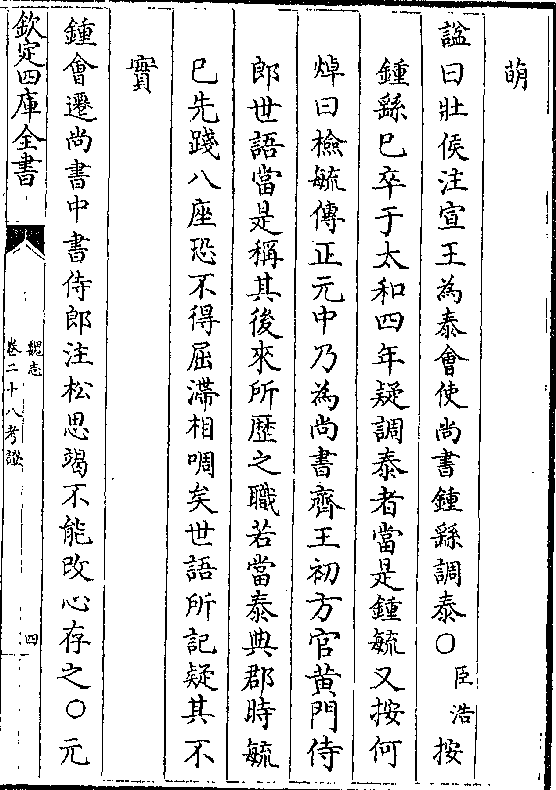 萌
諡曰壯侯注宣王為泰會使尚書鍾繇調泰〇臣浩按
鍾繇已卒于太和四年疑調泰者當是鍾毓又按何
焯曰檢毓傳正元中乃為尚書齊王初方官黄門侍
郎世語當是稱其後來所歴之職若當泰典郡時毓
已先踐八座恐不得屈滯相啁矣世語所記疑其不
實
鍾會遷尚書中書侍郎注松思竭不能改心存之〇元
欽定四庫全書
魏志
卷二十八考證
四